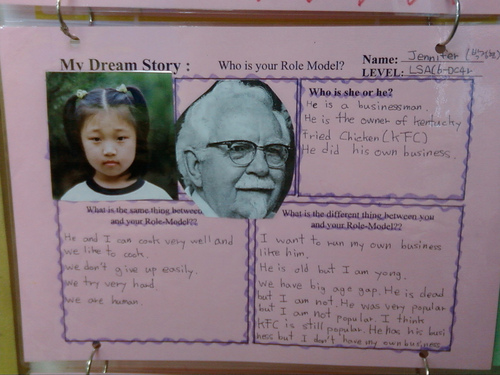 My Dream Story : Who is your Role Model?
Name: Jennifer
LEVEL: LSA
Who is she or he?
He is a businessman.
He is the owner of Kentucky
Fried Chicken (KFC)
He did his own business.
What is the same thing between
and your Role-Model??
He and I can cook very well and
we like to cook.
we don't give up easily.
we try very hard
we are human.
What is the different thing between you
and your Role-Model??
I want to run my own business
like him.
He is old but I am young.
we have big age gap. He is dead
but I am not. He was very popular
but I am not popular. I think
KFC is still popular. He has his busi
ness but I don't have my own business.